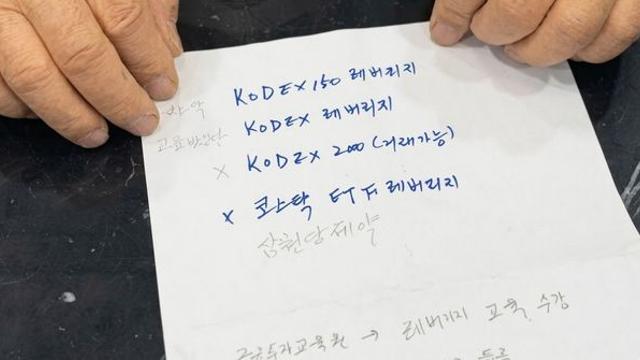 KODEX 150 레버리지
KODEX 레버리지
x KODEX 200 (거래가능)
x 코스닥 ETF 레버리지
삼천당제약
금융투자교육원 → 레버리지 교육 수강
등록